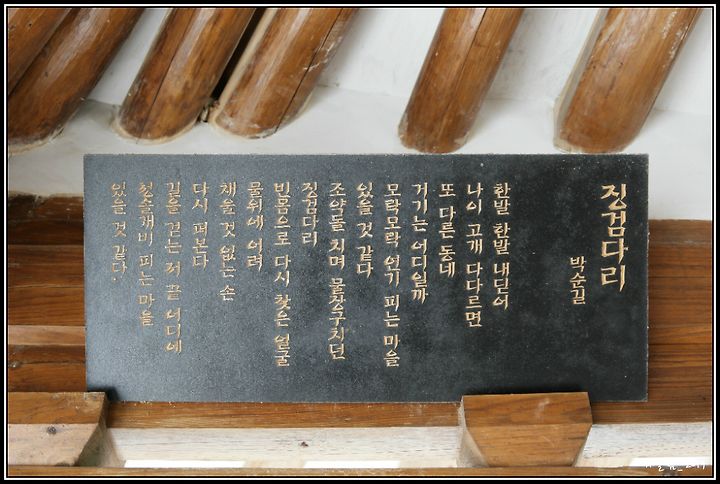 징검다리
박순길
한발 한발 내딛어
나이 고개 다다르면
또 다른 동네
거기는 어디일까
모락모락 연기 피는 마을
있을 것 같다
조약돌 치며 물장구치던
징검다리
빈몸으로 다시 찾은 얼굴
물위에 어려
채울것 없는 손
다시 펴본다
길을 걷는 저 끝 어디에
청솔개비 피는 마을
있을 것 같다.